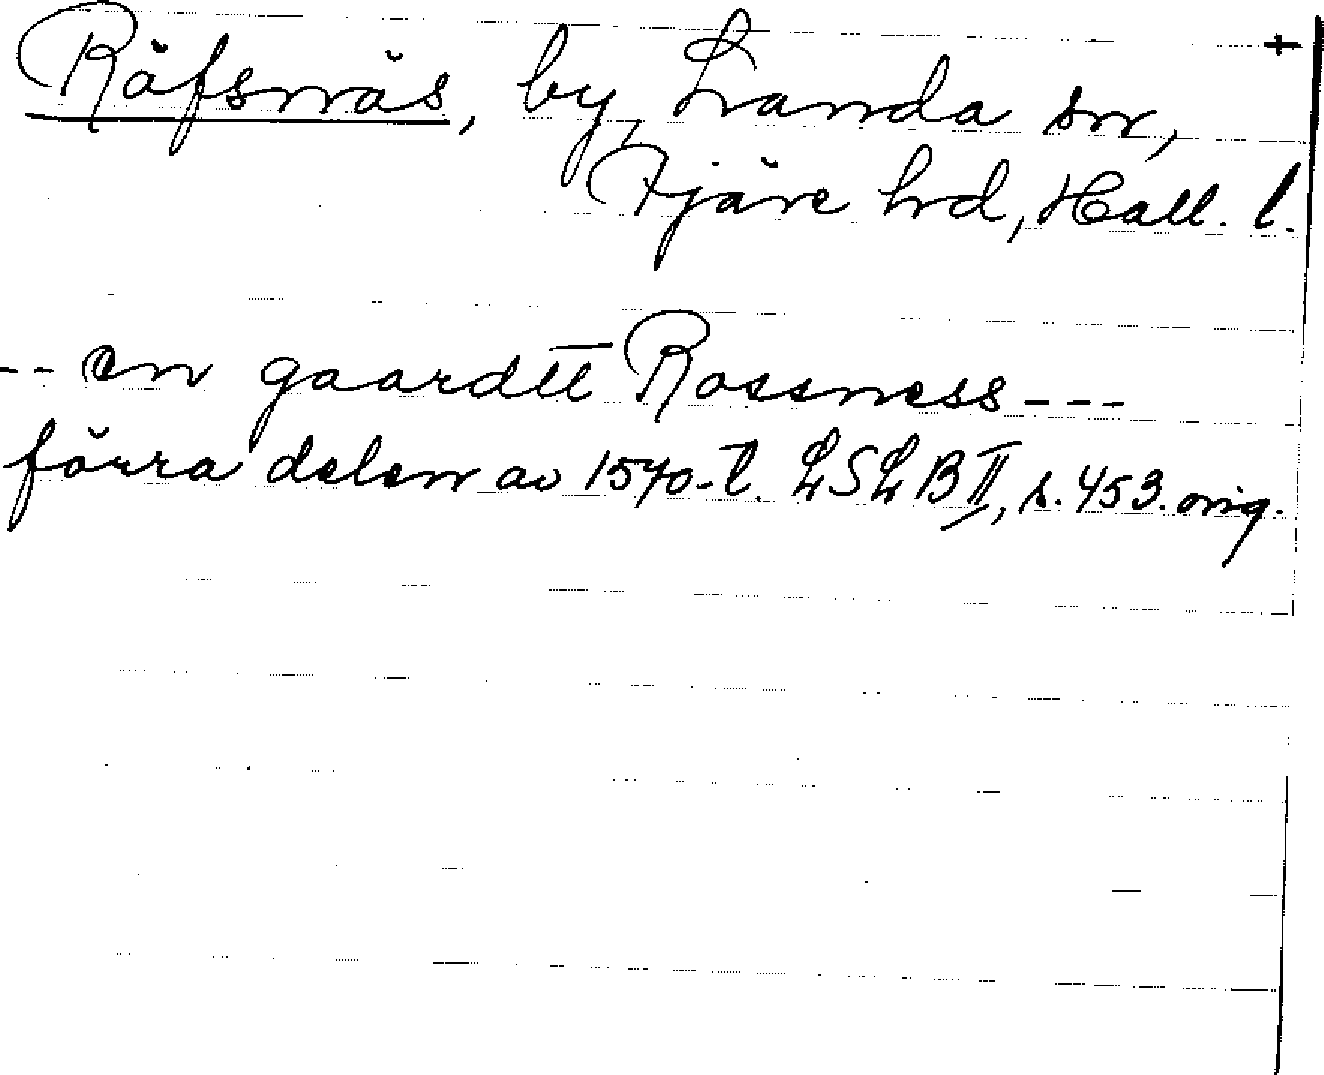 Räfsnäs, by, Landa sn, +
Fjäre hrd, Hall. l.
-- en gaardtt Rossness ---
förra delen av 1540-t. LSLB II, s. 453. orig.